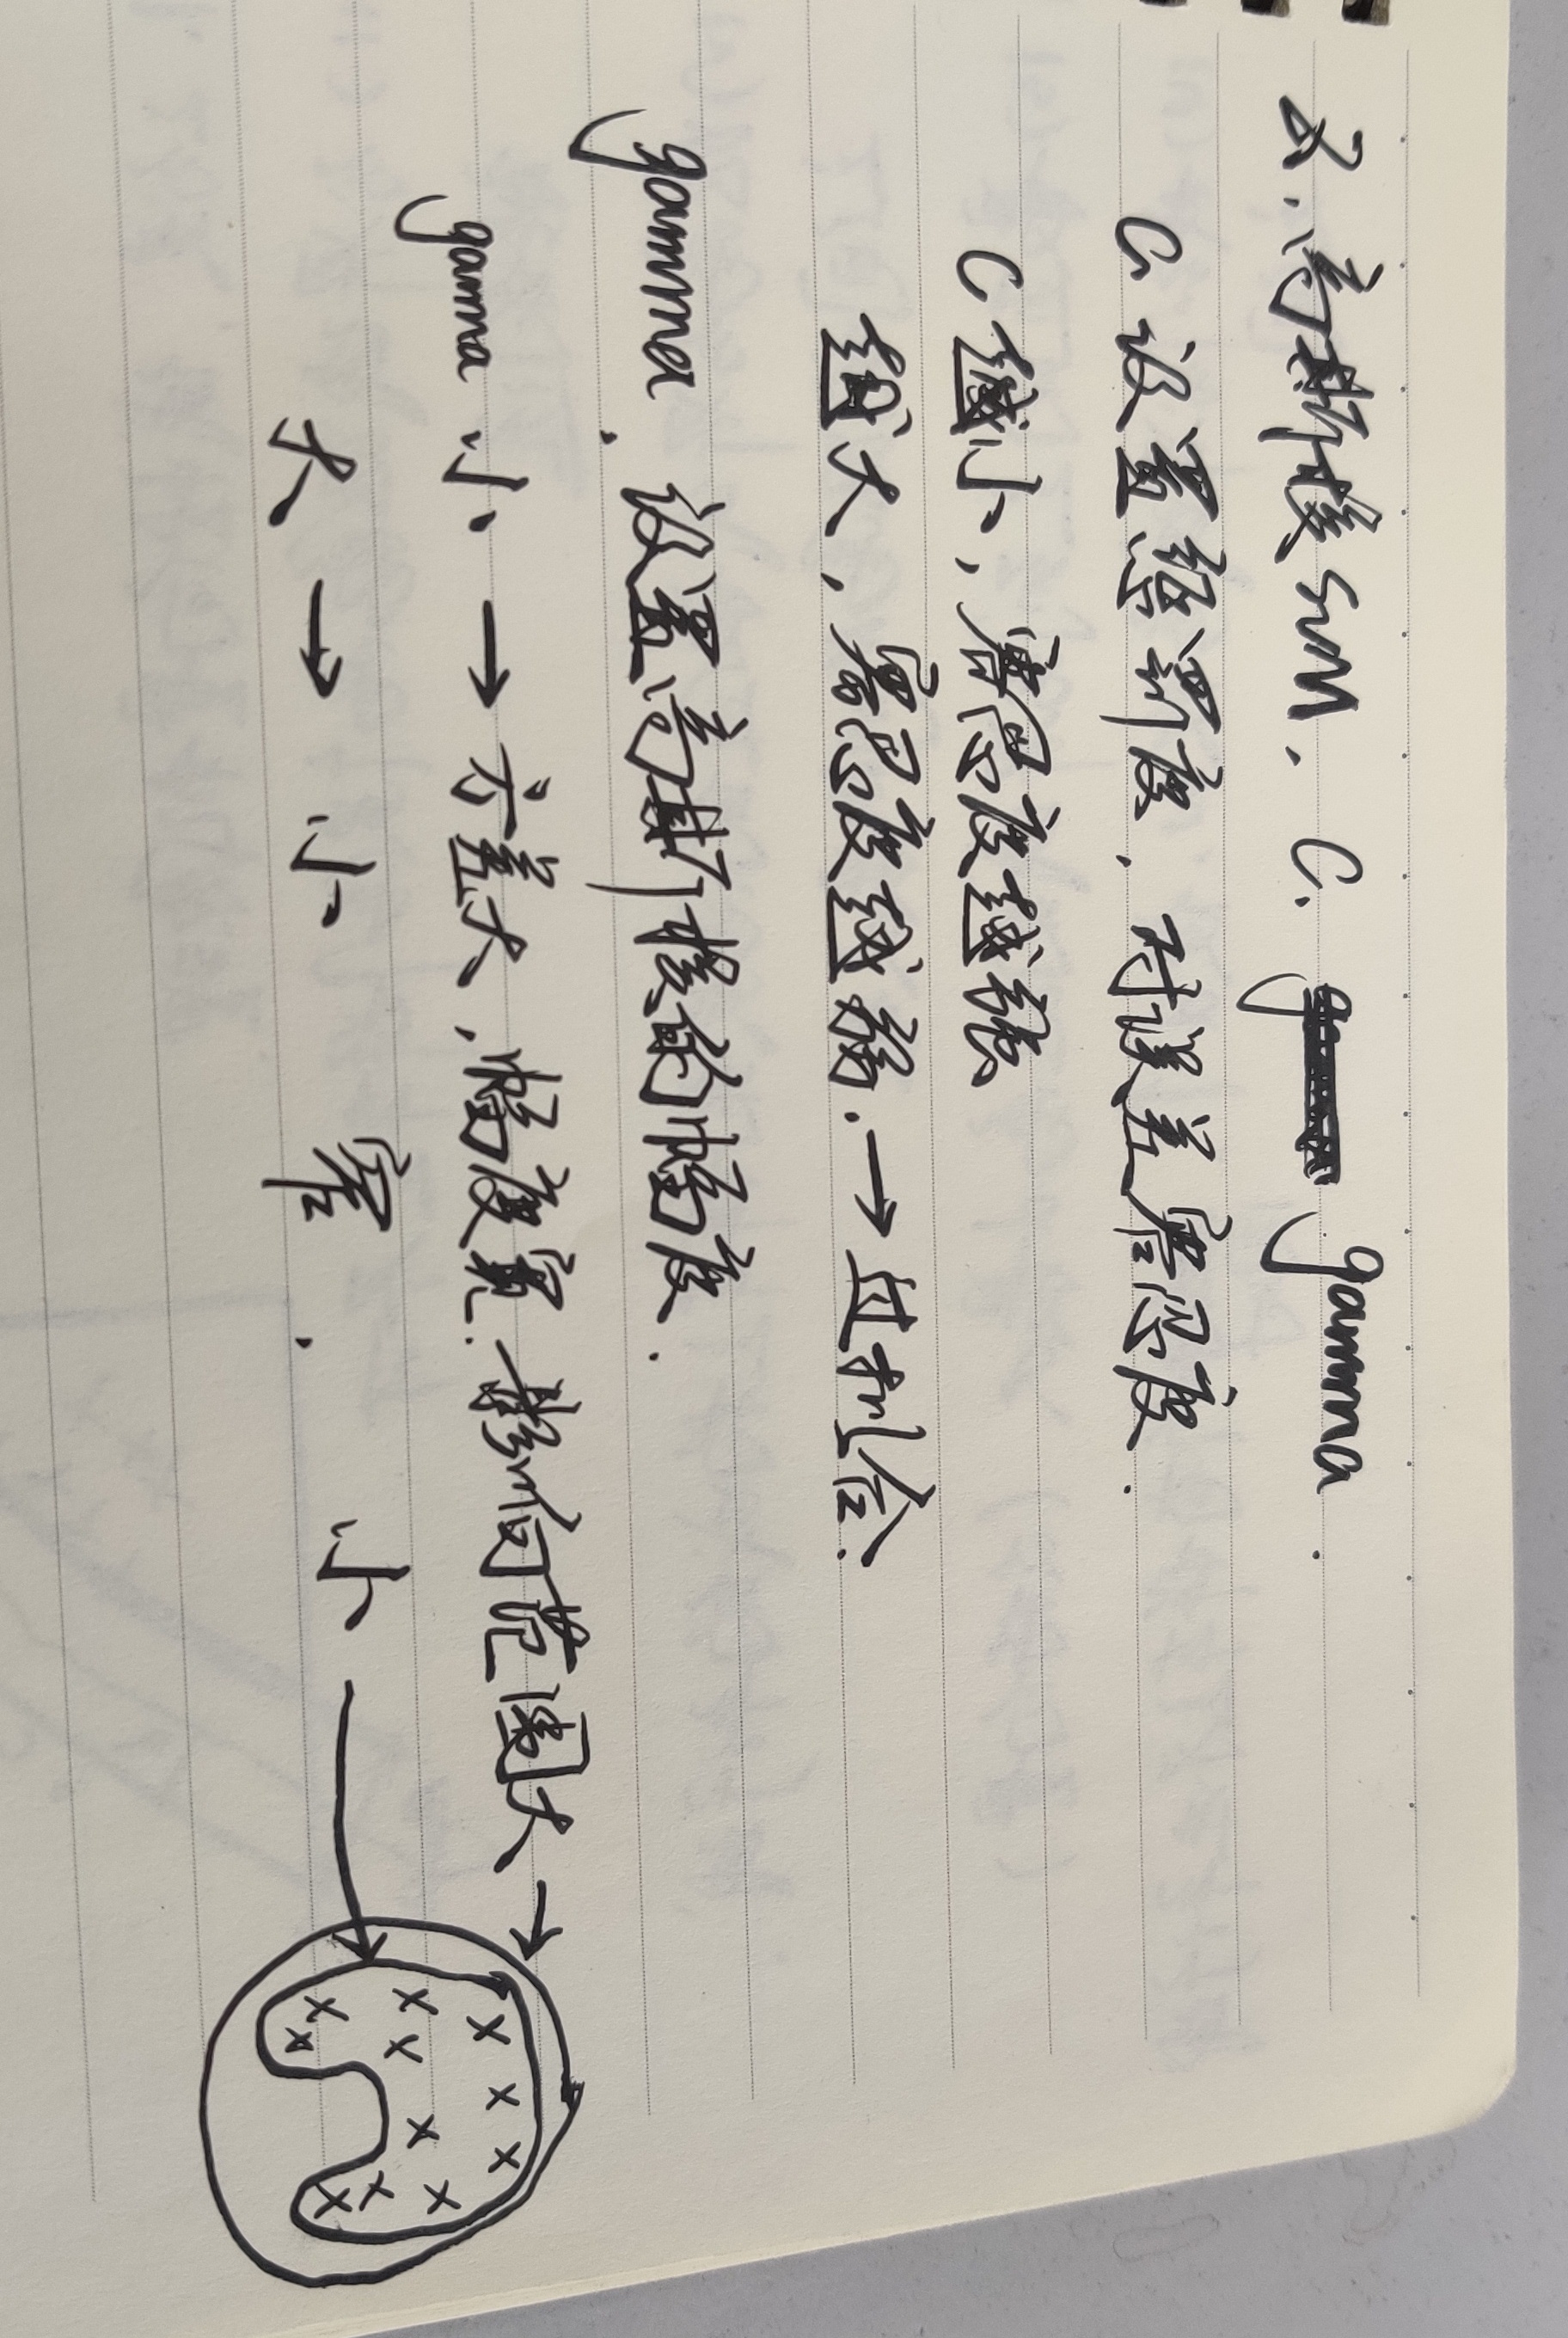 2. 高斯核SVM, C. gamma.
C, 设置惩罚度, 对误差容忍度.
C 越小, 容忍度越强
越大, 容忍度越弱. → 过拟合.
gamma, 设置高斯核的幅度.
gamma 小 → 方差大, 幅度宽. 影响范围大 →
大 → 小 窄. 小 →